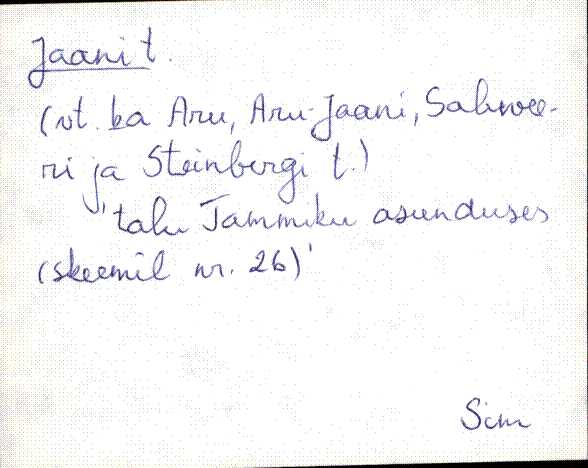 Jaani t.
(vt. ka Aru, Aru-Jaani, Sahvee-
ri ja Steinbergi t.)
'talu Tammiku asunduses
(skeemil nr. 26)'
Sim